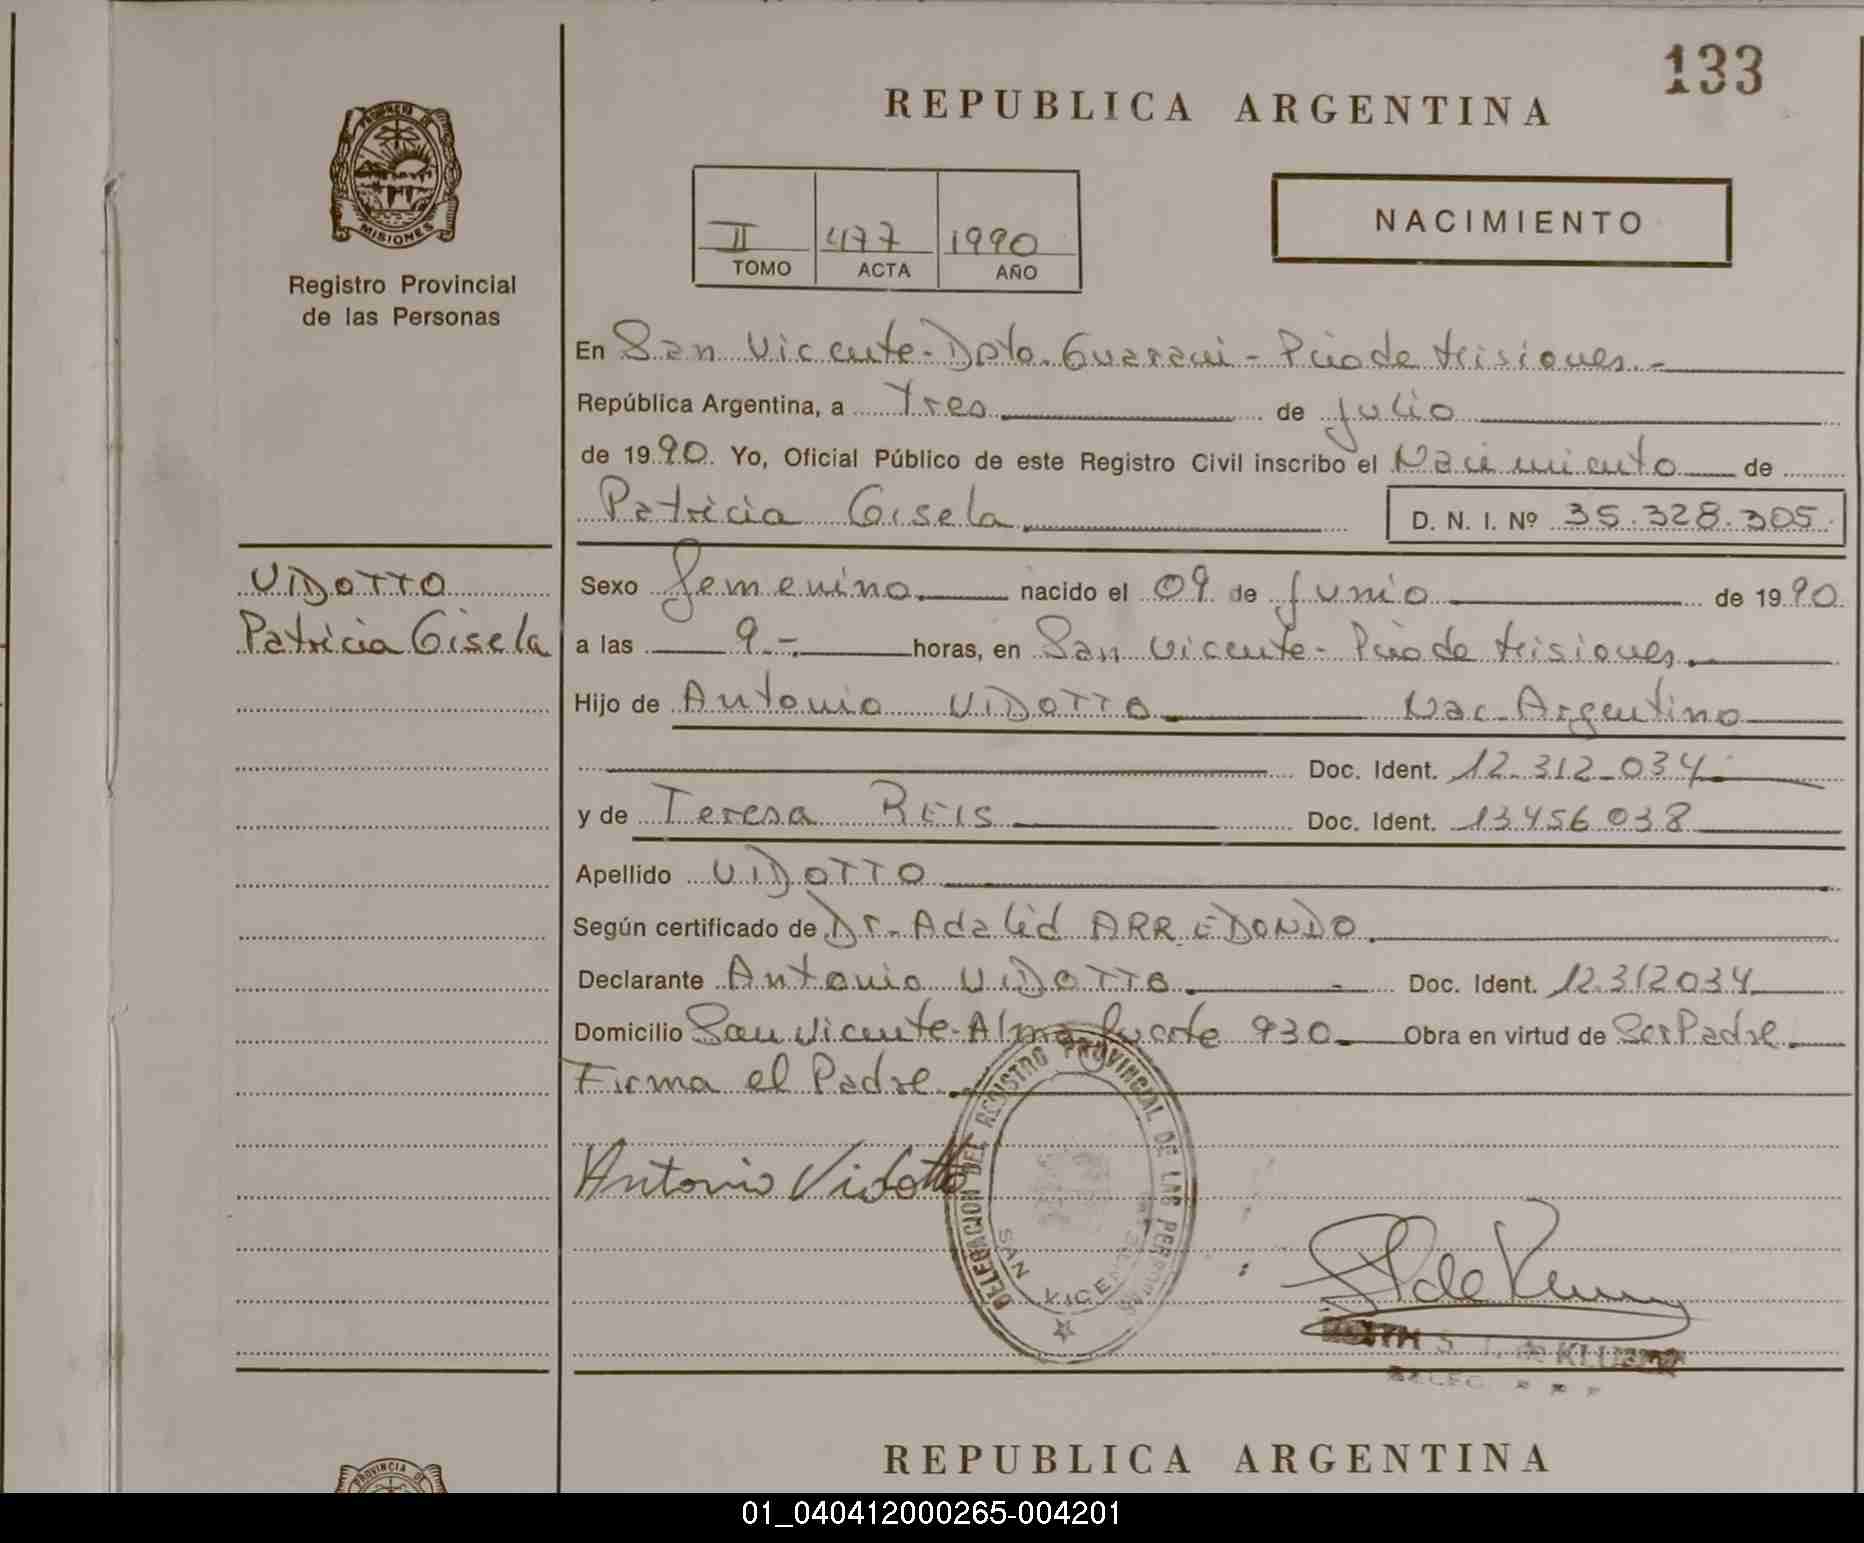 133
REPUBLICA ARGENTINA
PROVINCIA DE
MISIONES
Registro Provincial
de las Personas
II 477 1990
TOMO ACTA AÑO
NACIMIENTO
En San Vicente - Dpto. Guarani - Pcia de Misiones.-
República Argentina, a Tres de Julio
de 1990. Yo, Oficial Público de este Registro Civil inscribo el Nacimiento de
Patricia Gisela D. N. I. Nº 35.328.305.
VIDOTTO
Patricia Gisela
Sexo femenino nacido el 09 de Junio de 1990
a las 9 -. horas, en San Vicente - Pcia de Misiones.
Hijo de Antonio VIDOTTO Nac. Argentino
Doc. Ident. 12.312.034
y de Teresa REIS Doc. Ident. 13456038
Apellido VIDOTTO
Según certificado de Dr. Adalid ARREDONDO.
Declarante Antonio VIDOTTO. Doc. Ident. 12.312034
Domicilio San Vicente - Almafuerte 930. Obra en virtud de Ser Padre.
Firma el Padre.
Antonio Vidotto
DELEGACION DEL REGISTRO PROVINCIAL DE LAS PERSONAS
SAN VICENTE
S. de KLUE
PROVINCIA DE
REPUBLICA ARGENTINA
01_040412000265-004201